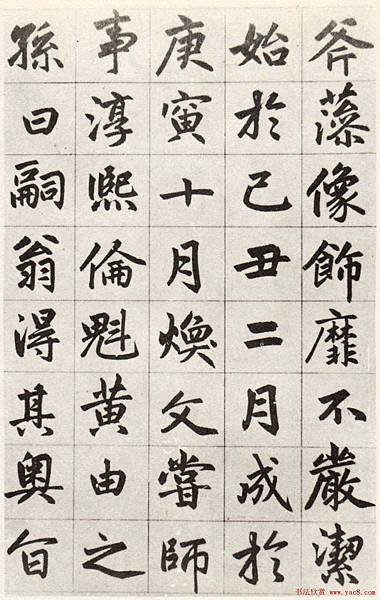 斧藻像飾靡不嚴潔
始於己丑二月成於
庚寅十月煥文嘗師
事淳熙倫魁黃由之
孫曰嗣翁得其奧旨
书法欣赏 www.yac8.com